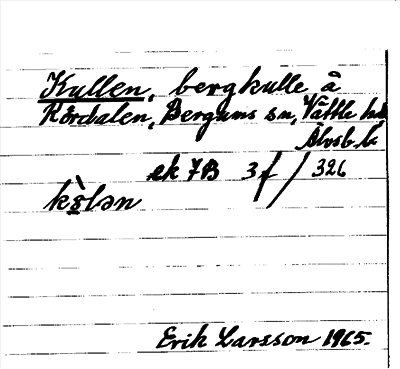 Kullen, bergkulle å
Rördalen, Bergums sn, Vättle hd
Älvsb. l.
ek 7B 3f/326
kö̀lən
Erik Larsson 1965.